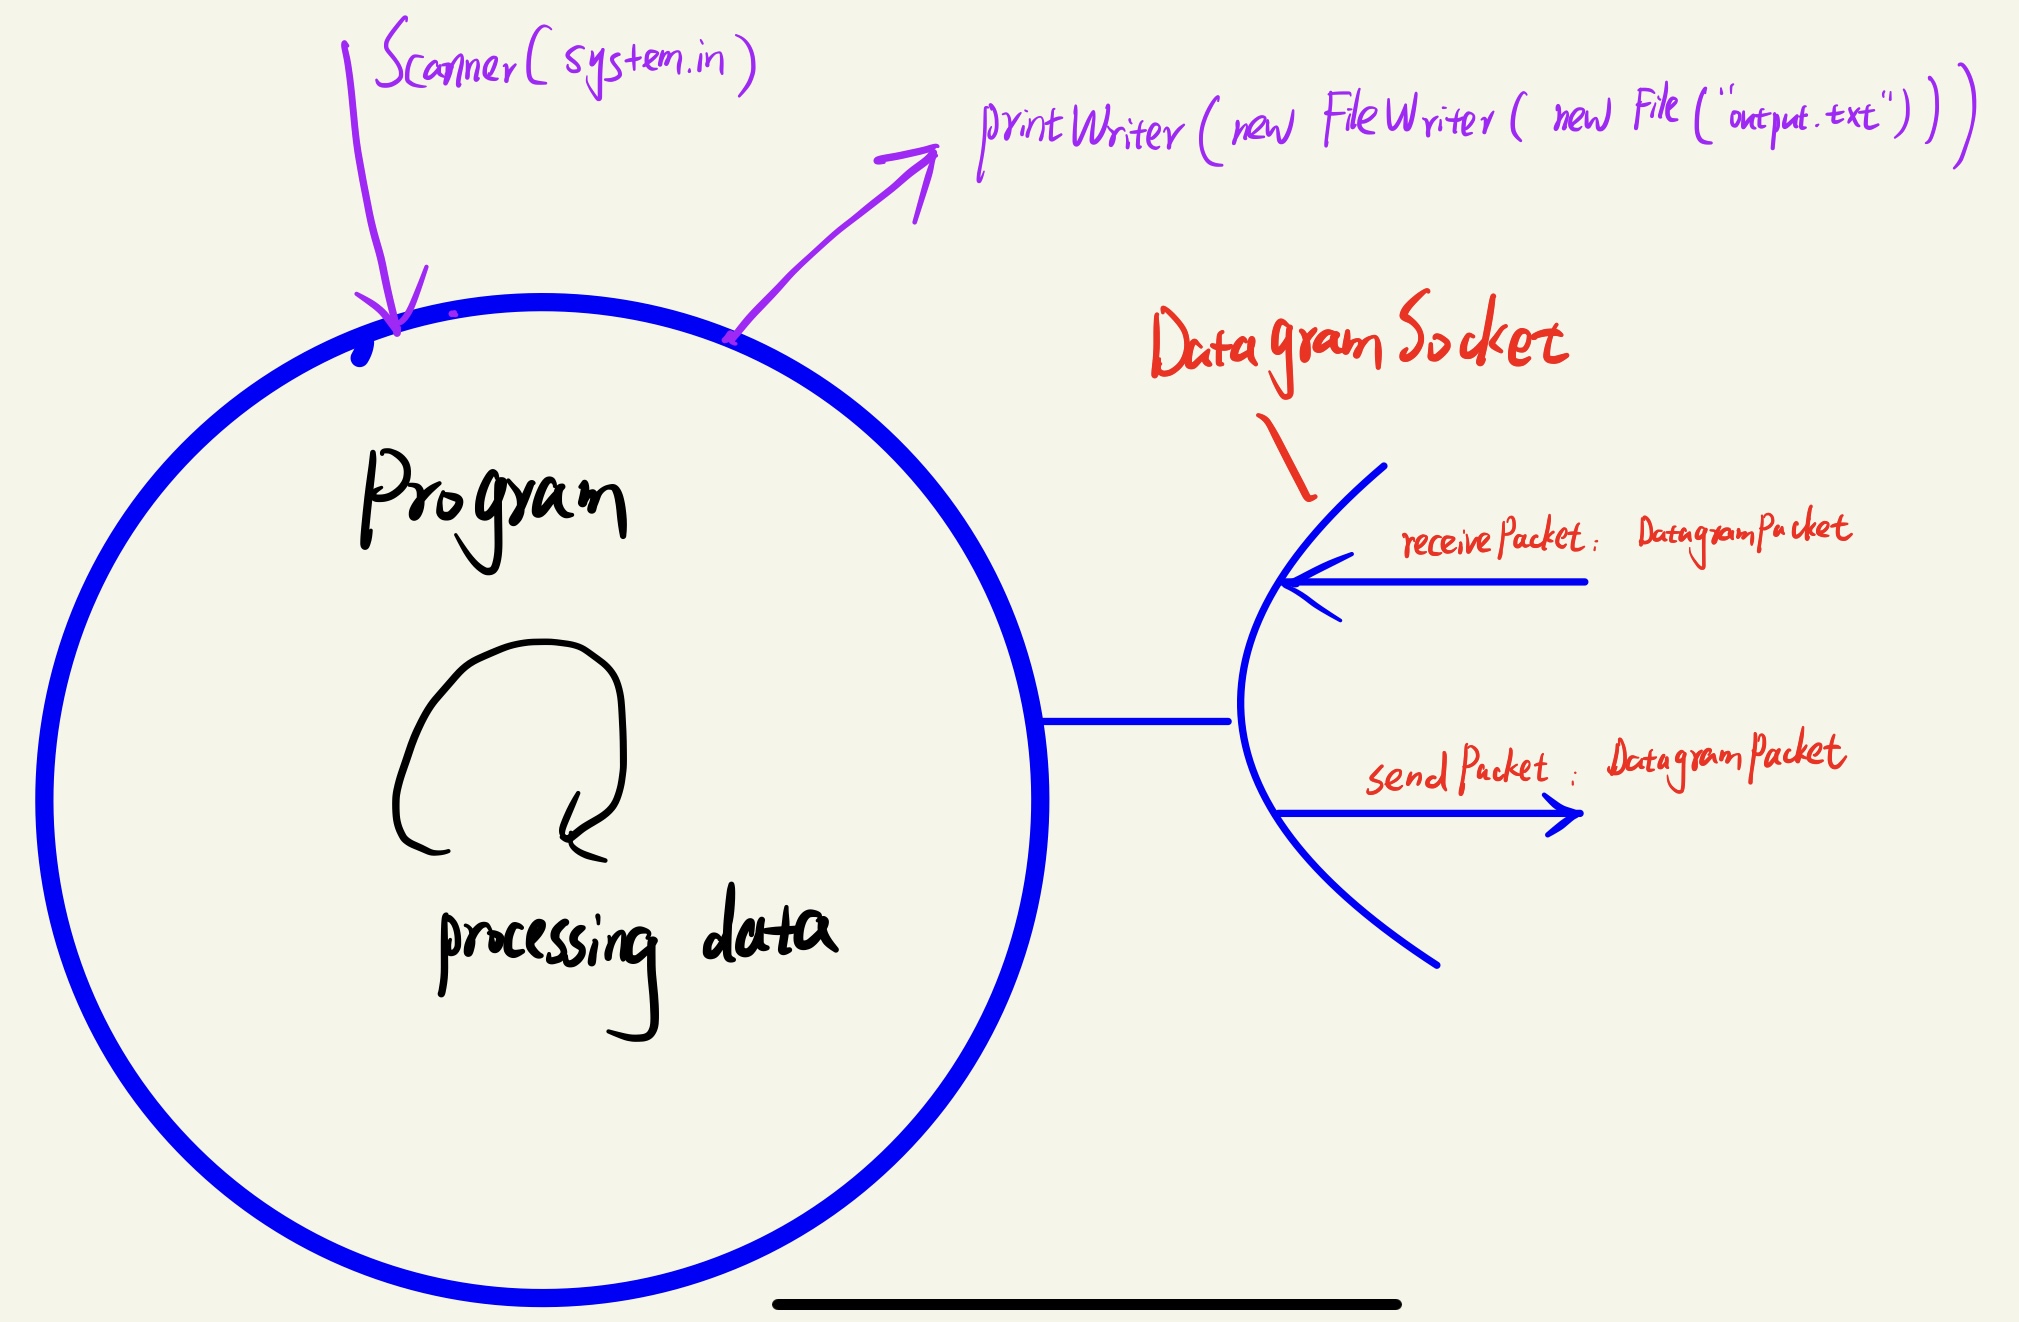 Scanner(system.in)
printWriter(new FileWriter(new File("output.txt")))
DatagramSocket
Program
receivePacket: DatagramPacket
sendPacket: DatagramPacket
processing data